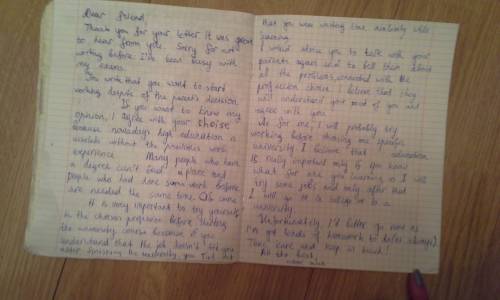 Dear friend,
Thank you for your letter. It was great
to hear from you. Sorry for not
writing before I've been busy with
my exams.
You write that you want to start
working despite of the parent's decision.
If you want to know my
opinion, I agree with your choise
because nowadays high education is
without the practical work
experience. Many people who have
a degree can't find a place and
people who had done some work before
are needed the same time. Of course
It is very important to try yourself
in the chosen profession before starting
the university course because if you
understand that the job doesn't fit you
after finishing the university, you
that you were wasting time
I would advise you to talk with your
parents again and to tell them about
all the problems connected with the
profession choice. I believe that they
will understand your most of you and
agree with you.
As for me, I will probably try
working before choosing one specific
university. I believe that education
is really important only if you know
what for are you learning so I will
try some jobs and only after that
I will go to a college or to a
university.
Unfortunately I'd better go now as
I've got loads of homework to do (as always).
Take care and keep in touch!
All the best,